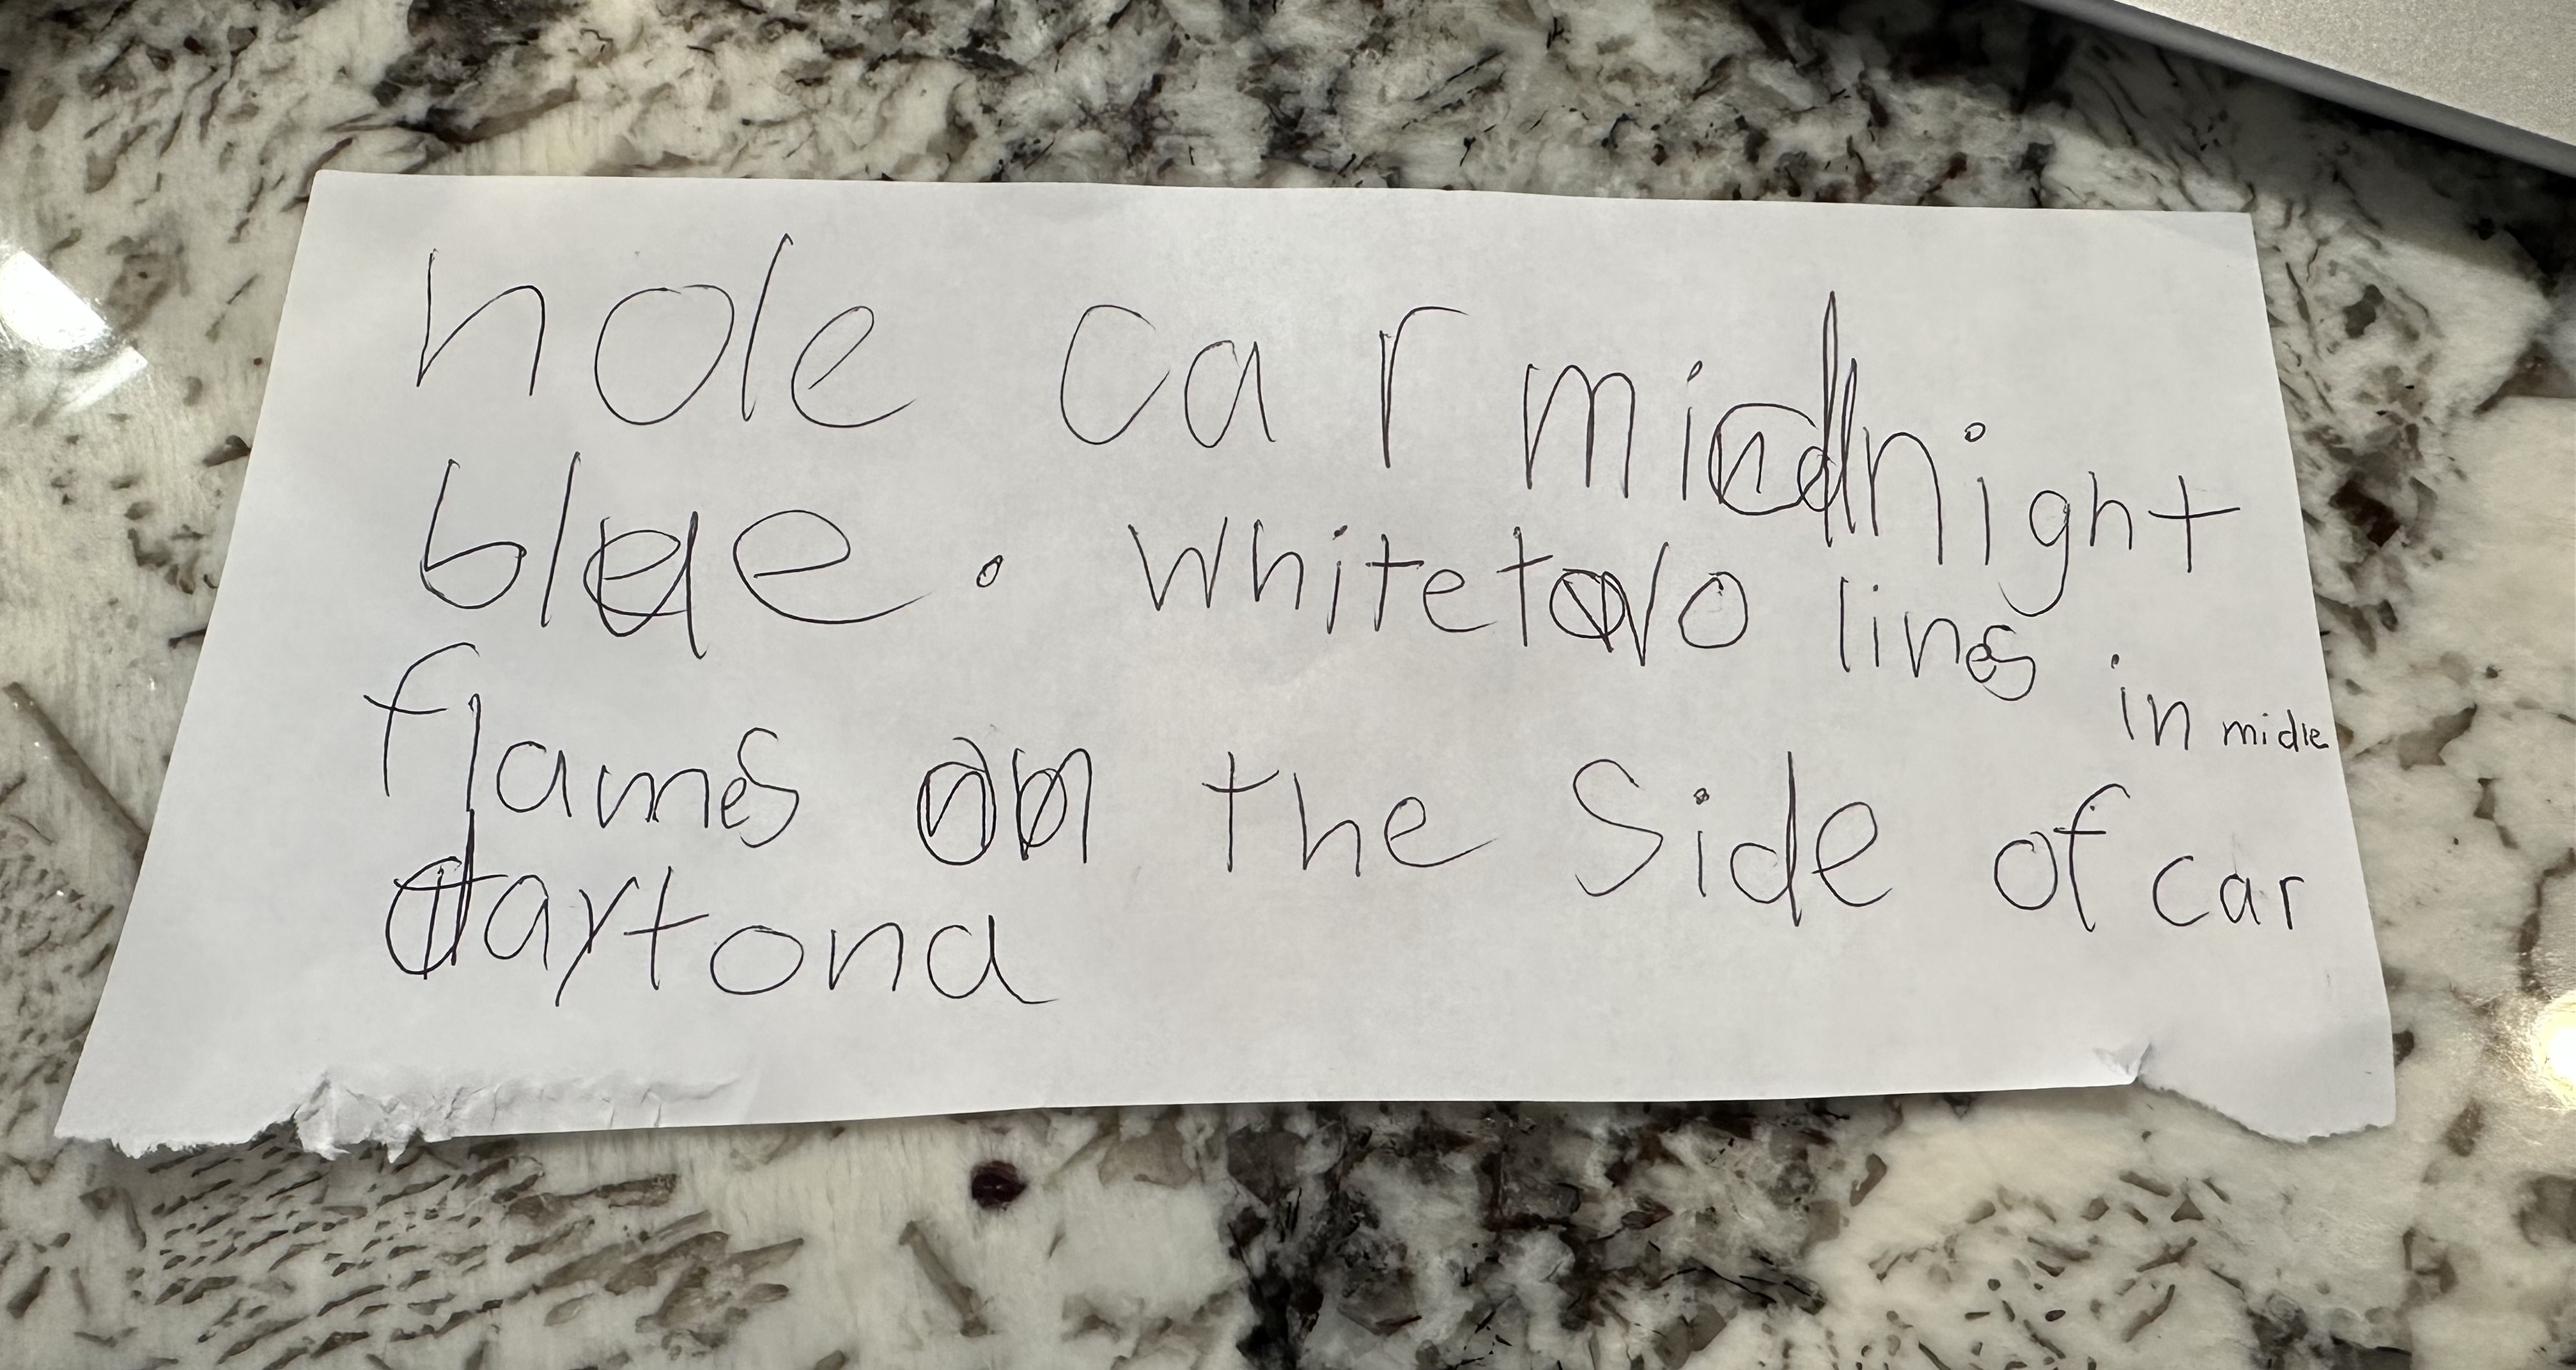 hole car midnight
blue. white two lines in midle
flames on the side of car
daytona